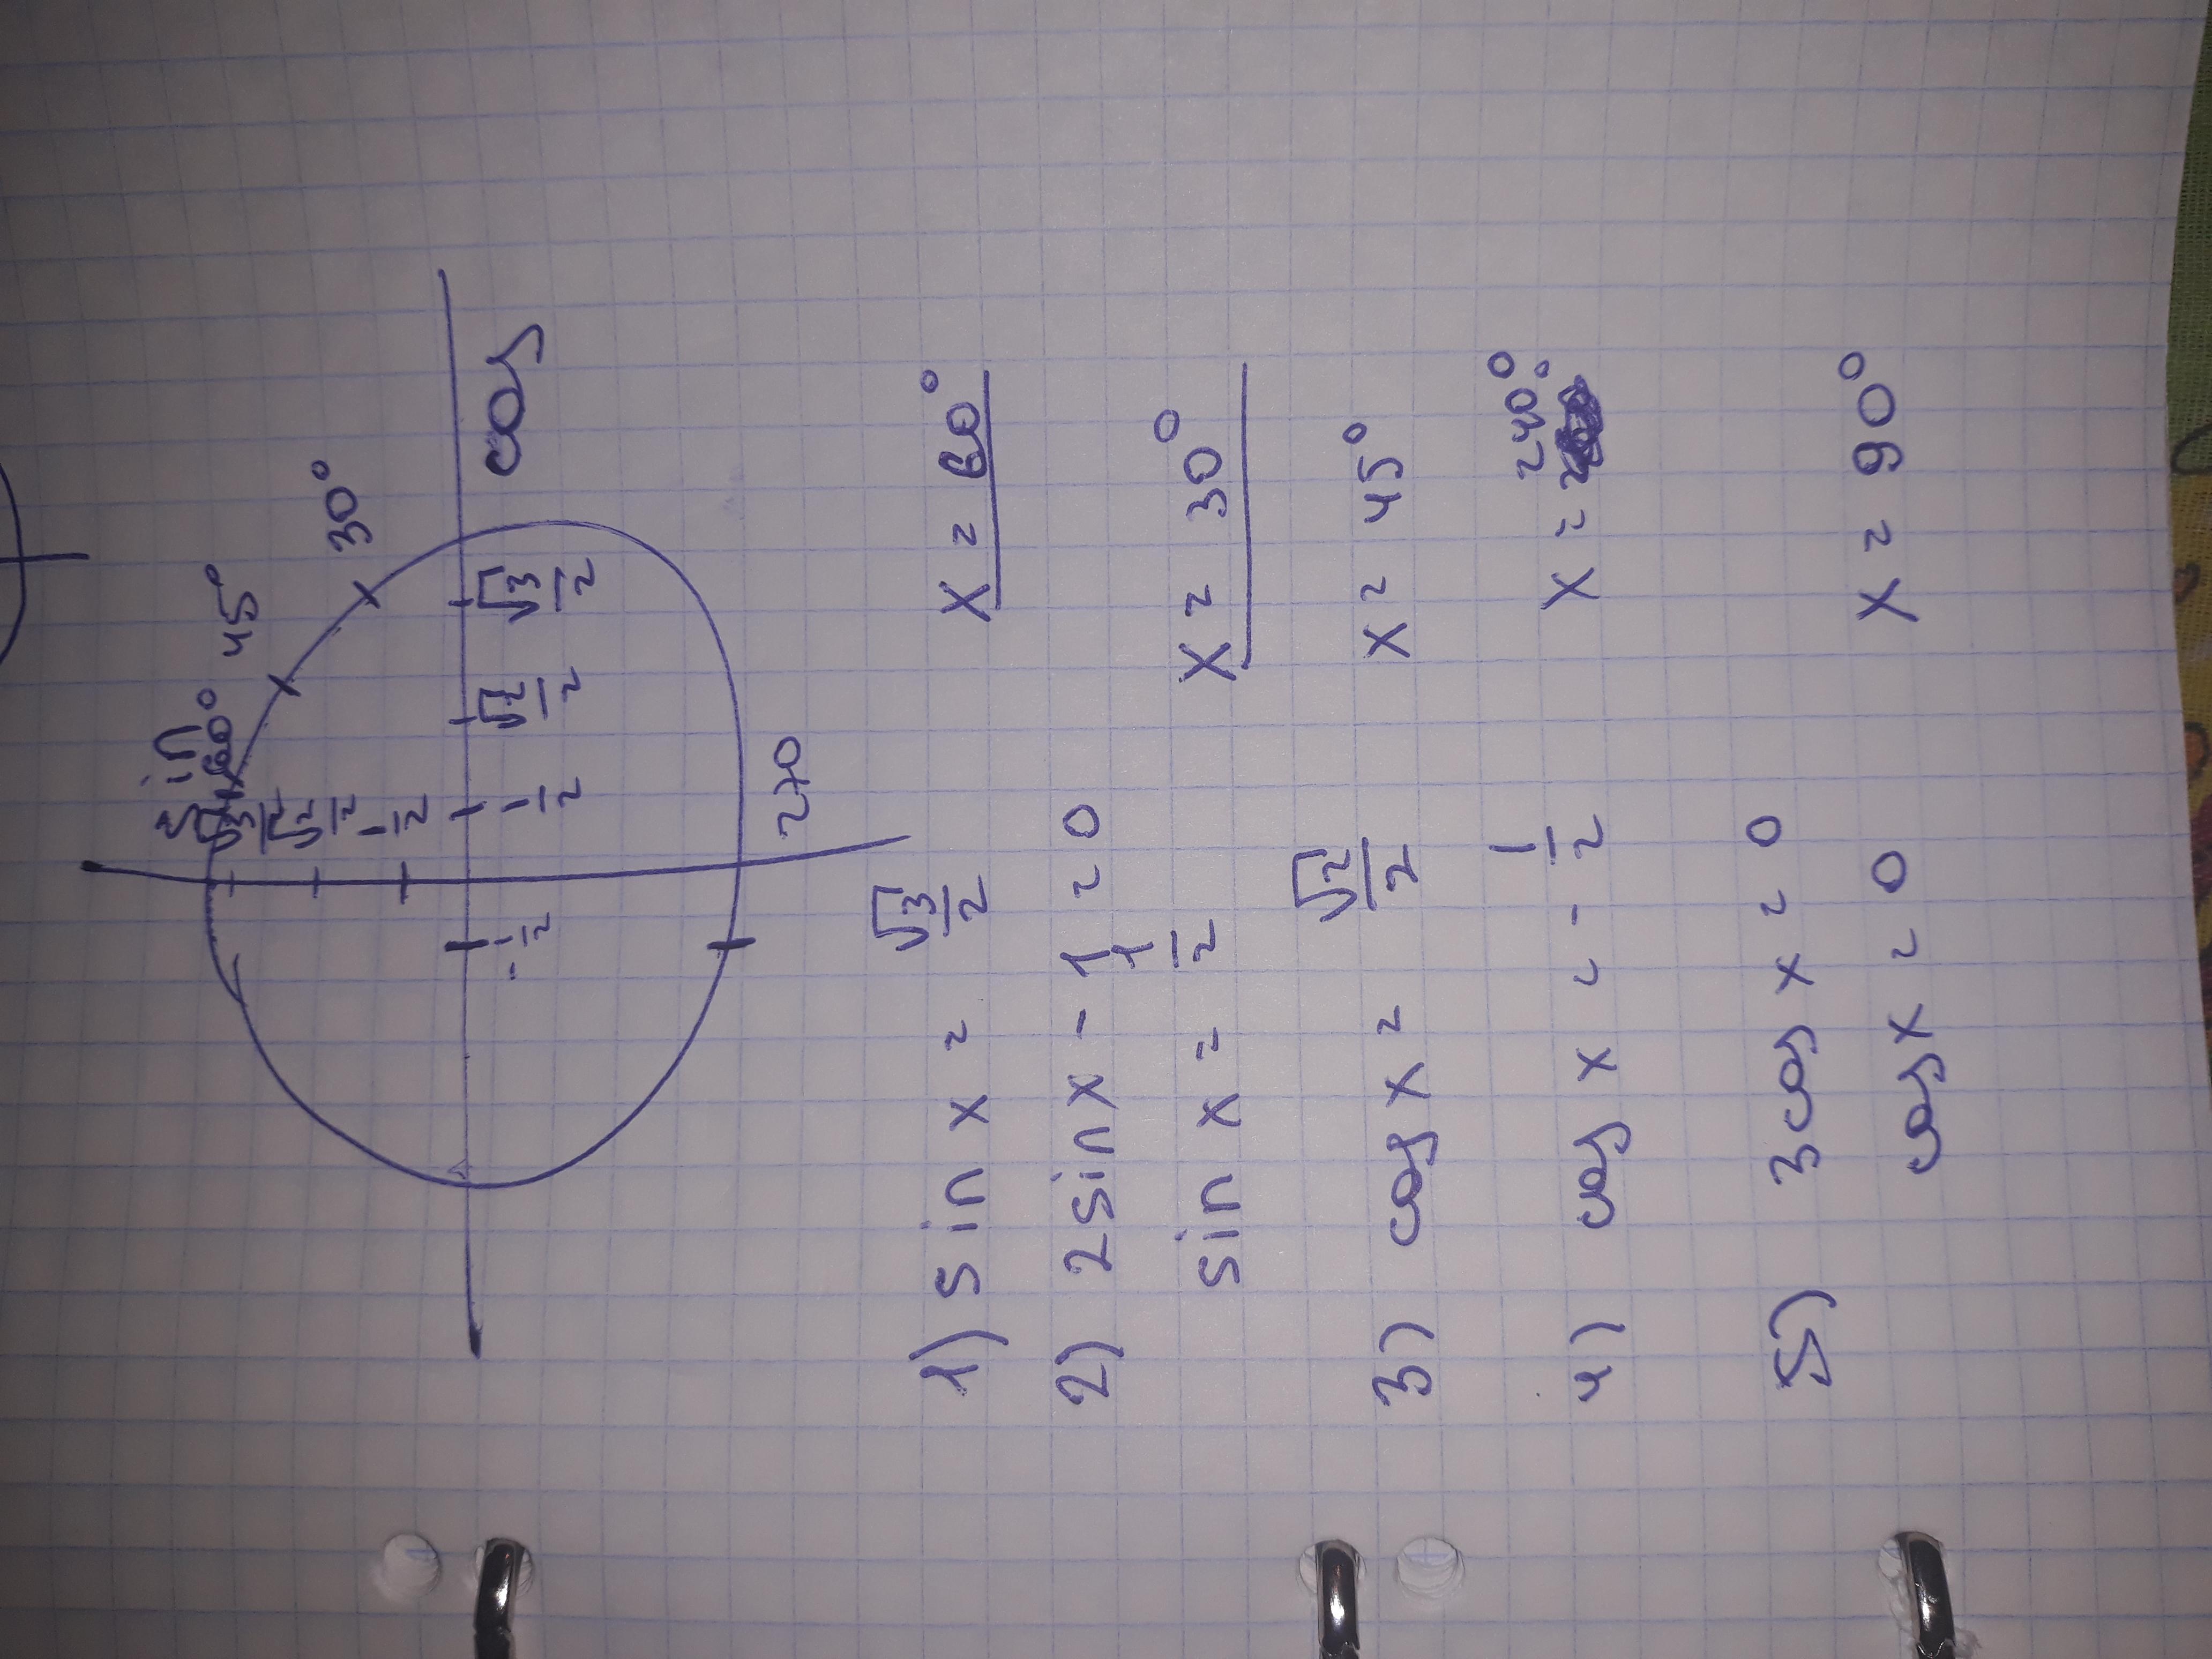 sin
60°
45°
30°
√3/2
√2/2
1/2
-1/2 1/2 √2/2 √3/2 cos
270
1) sin x = √3/2 x = 60°
2) 2sin x - 1 = 0
sin x = 1/2 x = 30°
3) cos x = √2/2 x = 45°
4) cos x = -1/2 x = 240°
5) 3cos x = 0
cos x = 0 x = 90°